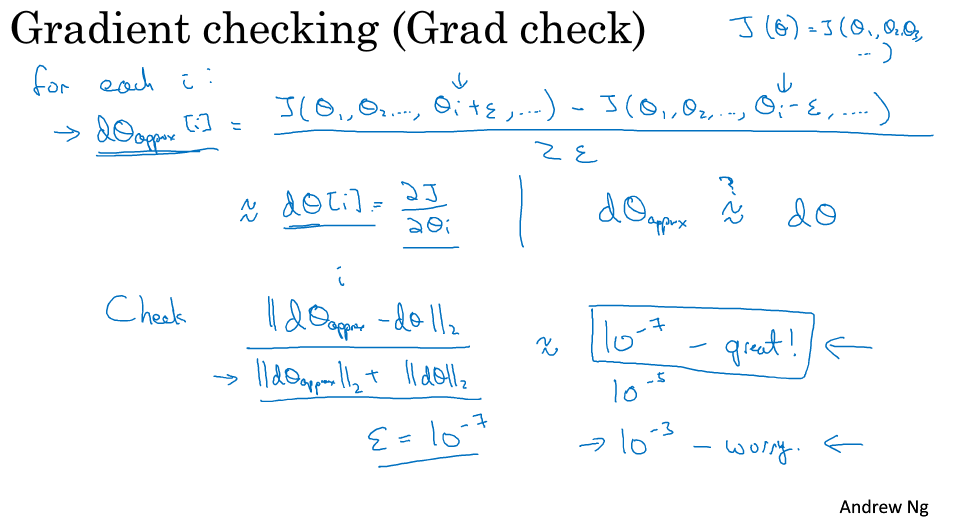 Gradient checking (Grad check)
J(θ) = J(θ₁, θ₂, θ₃, ...)
for each i:
→ dθapprox[i] = J(θ₁, θ₂, ..., θᵢ+ε, ...) - J(θ₁, θ₂, ..., θᵢ-ε, ....) / 2ε
≈ dθ[i] = ∂J/∂θᵢ | dθapprox ≈? dθ
i
Check ||dθapprox - dθ||₂ / ||dθapprox||₂ + ||dθ||₂ ≈ 10⁻⁷ - great! ←
10⁻⁵
ε = 10⁻⁷ → 10⁻³ - worry. ←
Andrew Ng